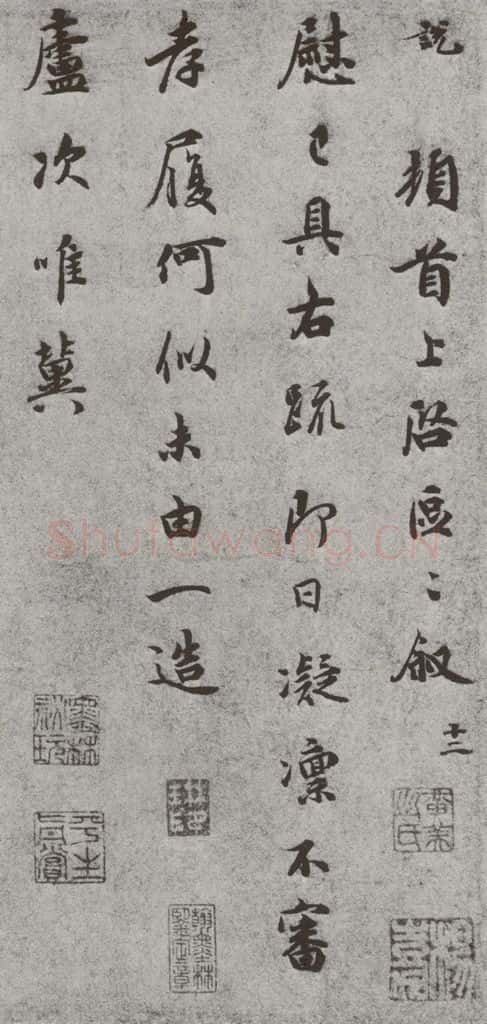 説 頓首上啓區〻叙
十二
慰已具右疏即日凝凜不審
孝履何似未由一造
廬次唯冀
Shufawang.CN